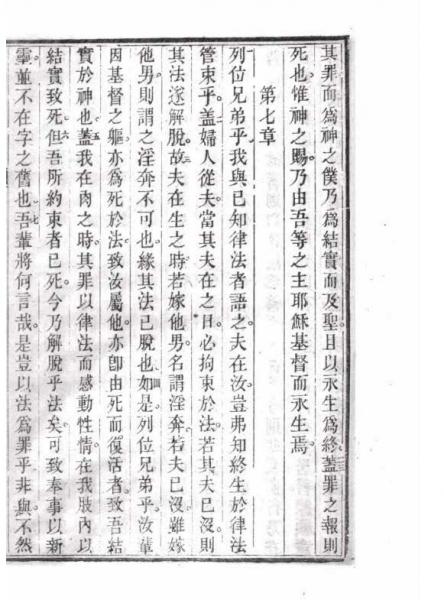 其罪而爲神之僕乃爲結實而及聖且以永生爲終蓋罪之報則
死也惟神之賜乃由吾等之主耶穌基督而永生焉
第七章
列位兄弟乎我與已知律法者語之夫在汝豈弗知終生於律法
管束乎蓋婦人從夫當其夫在之日必拘束於法若其夫已沒則
其法遂解脫故夫在生之時若嫁他男名謂淫奔若夫已沒雖嫁
他男則謂之淫奔不可也緣其法已脫也如是列位兄弟乎汝輩
因基督之軀亦爲死於法致汝屬他亦卽由死而復活者致吾結
實於神也蓋我在肉之時其罪以律法而感動性情在我肢內以
結實致死但吾所約束者已死今乃解脫乎法矣可致奉事以新
靈並不在字之舊也吾輩將何言哉是豈以法爲罪乎非與不然